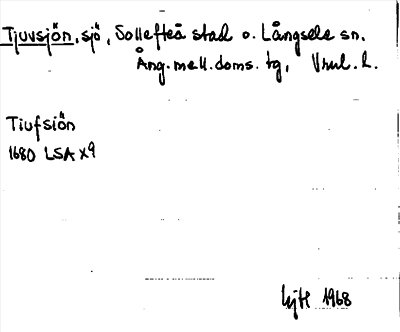 Tjuvsjön, sjö, Sollefteå stad o. Långsele sn.
Ång. mell. doms. tg, Vnrl. L.
Tiufsiön
1680 LSA X9
1968